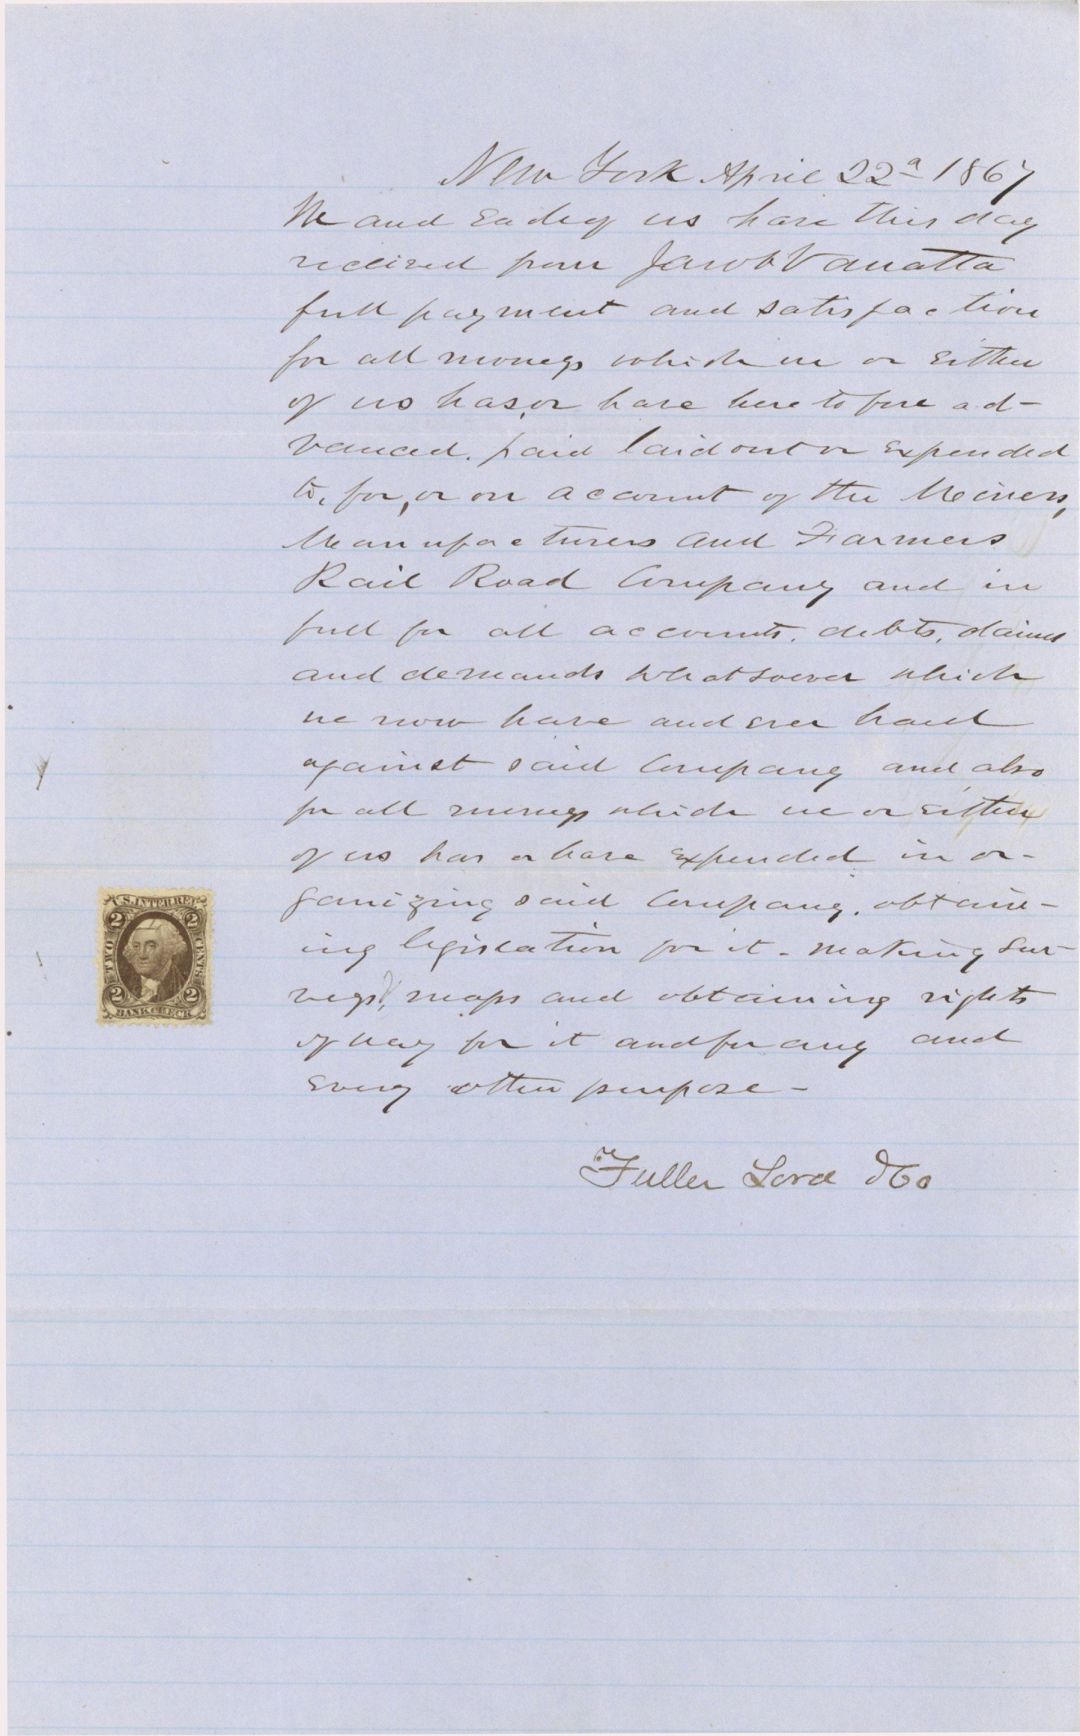 New York April 22d 1867
We and Each of us have this day
received from Jacob Vanatta
full payment and satisfaction
for all moneys which we or Either
of us has, or have here to fore ad-
vanced, paid laid out or Expended
to, for, or on account of the Miners,
Manufacturers and Farmers
Rail Road Company and in
full for all accounts, debts, claims
and demands whatsoever which
we now have and ever had
against said Company and also
for all moneys which we or Either
of us has or have Expended in or-
ganizing said Company, obtain-
ing legislation for it - making Sur-
veys, maps and obtaining rights
of way for it and for any and
Every other purpose -
U.S. INTER. REV.
2 2
TWO CENTS
2 2
BANK CHECK
Fuller Lord & Co